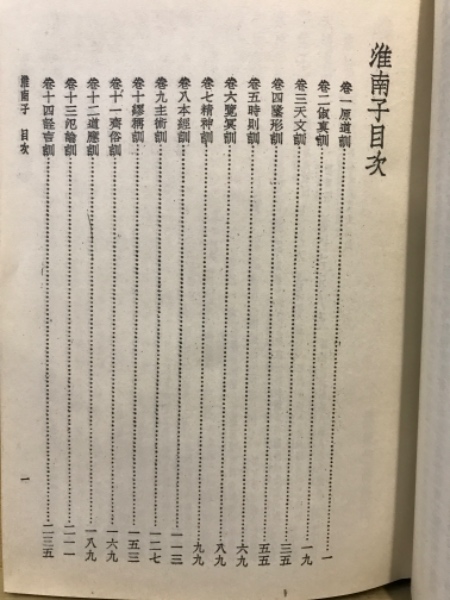 淮南子目次
卷一原道訓 一
卷二俶真訓 一九
卷三天文訓 三五
卷四墬形訓 五五
卷五時則訓 六九
卷六覽冥訓 八九
卷七精神訓 九九
卷八本經訓 一一三
卷九主術訓 一二七
卷十繆稱訓 一五三
卷十一齊俗訓 一六九
卷十二道應訓 一八九
卷十三氾論訓 二一一
卷十四詮言訓 二三五
淮南子 目次
一